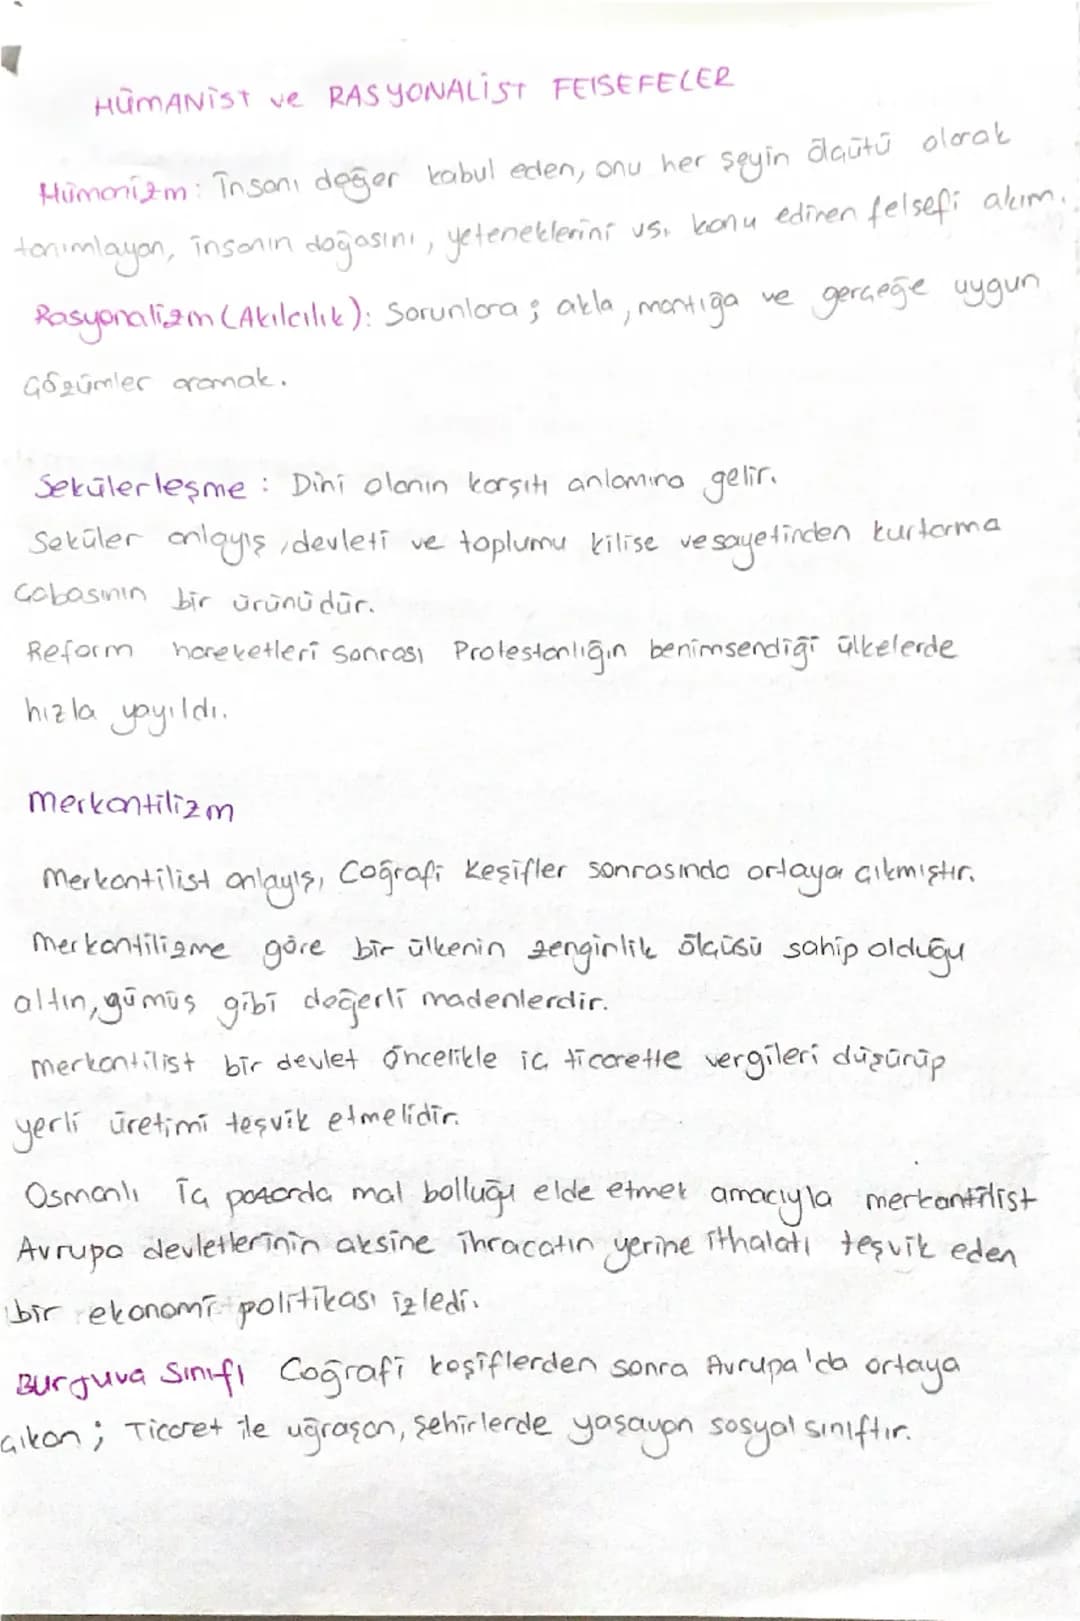 HÜMANİST ve RASYONALİST FElSEFELER
Hümanizm: İnsanı değer kabul eden, onu her şeyin ölçütü olarak
tanımlayan, insanın doğasını, yeteneklerini vs. konu edinen felsefi akım.
Rasyonalizm (Akılcılık): Sorunlara; akla, mantığa ve gerçeğe uygun
çözümler aramak.
Sekülerleşme: Dini olanın karşıtı anlamına gelir.
Seküler anlayış, devleti ve toplumu kilise vesayetinden kurtarma
çabasının bir ürünüdür.
Reform hareketleri sonrası Protestanlığın benimsendiği ülkelerde
hızla yayıldı.
Merkantilizm
Merkantilist anlayış, Coğrafi Keşifler sonrasında ortaya çıkmıştır.
Merkantilizme göre bir ülkenin zenginlik ölçüsü sahip olduğu
altın, gümüş gibi değerli madenlerdir.
Merkantilist bir devlet öncelikle iç ticarette vergileri düşürüp
yerli üretimi teşvik etmelidir.
Osmanlı İç pazarda mal bolluğu elde etmek amacıyla merkantilist
Avrupa devletlerinin aksine ihracatın yerine ithalatı teşvik eden
bir ekonomi politikası izledi.
Burjuva Sınıfı Coğrafi keşiflerden sonra Avrupa'da ortaya
çıkan; Ticaret ile uğraşan, şehirlerde yaşayan sosyal sınıftır.